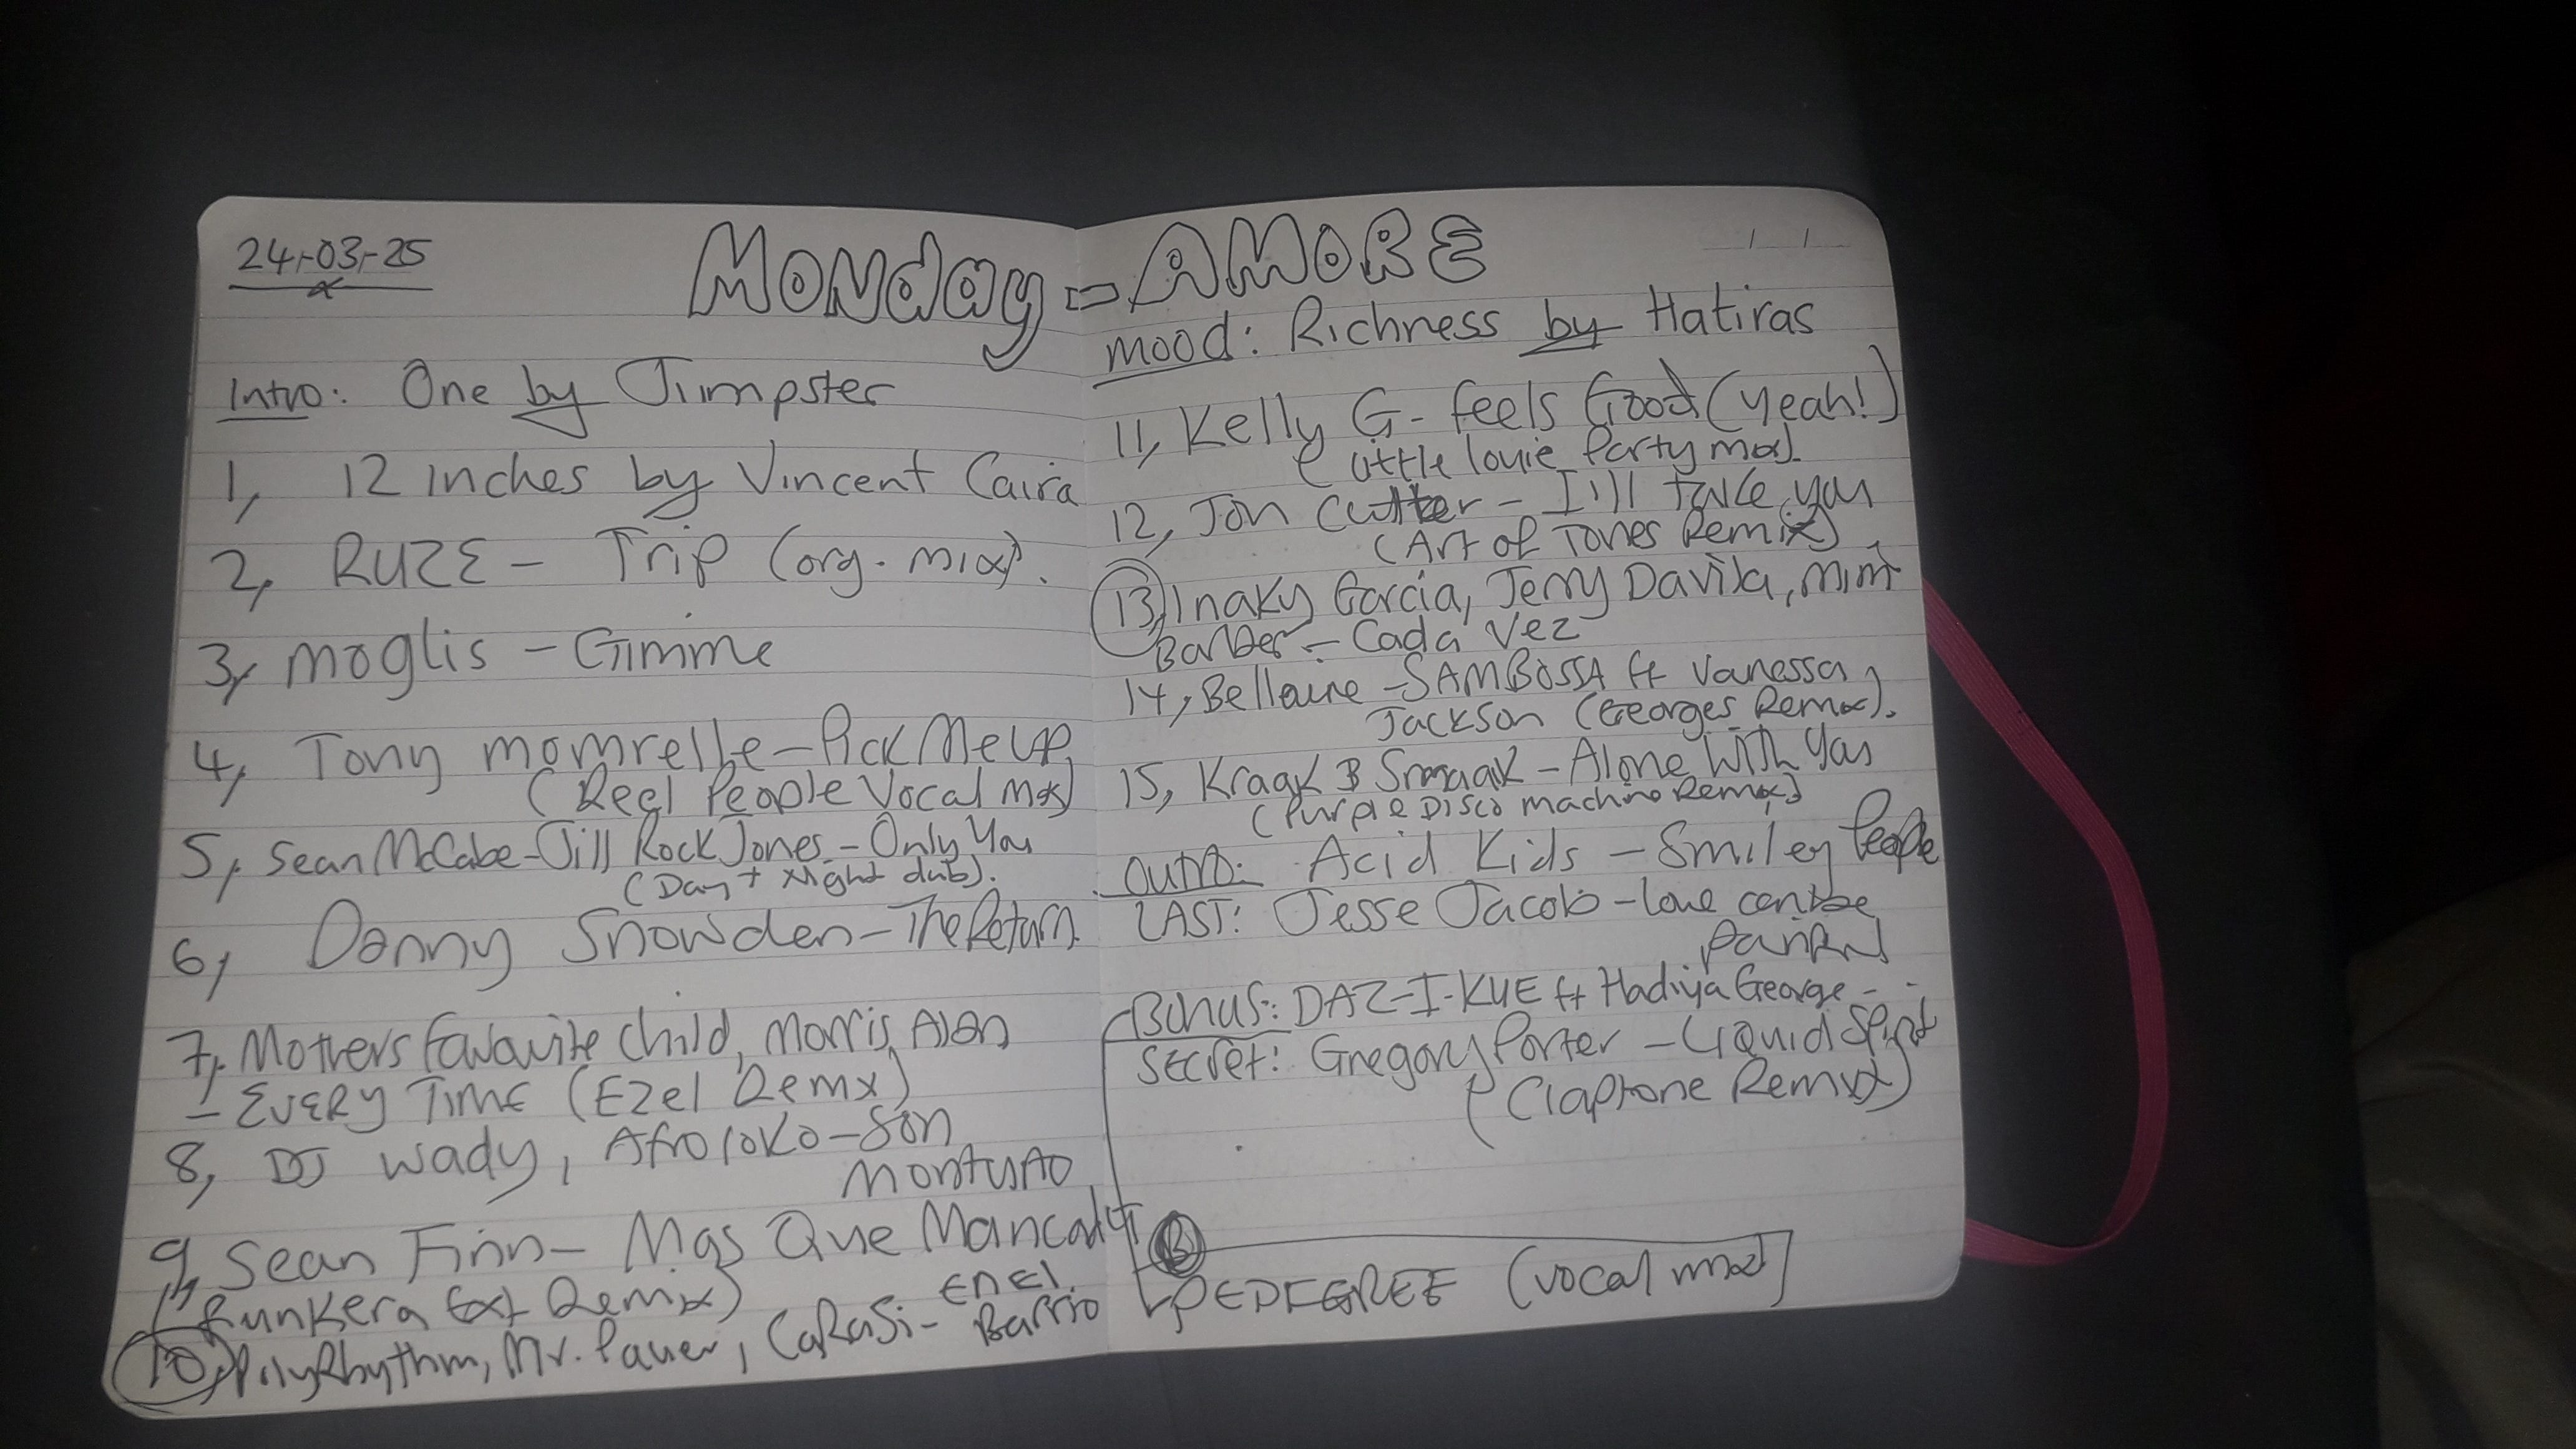 24-03-25
Monday - AMORE
Intro: One by Jimpster
1, 12 inches by Vincent Caira
2, RUZE - Trip (org. mix).
3, Moglis - Gimme
4, Tony momrelle - Pick Me Up
(Reel People Vocal mix)
5, Sean McCabe - Jill Rock Jones - Only You
(Day + Night dub).
6, Danny Snowden - The Return.
7, Mothers favourite child, Morris Alan
- EVERY TIME (Ezel Remx)
8, DJ Wady, Afroloko - Son
MONTUNO
9, Sean Finn - Mas Que Mancada
(Bunkera Ext Remix)
10, PolyRhythm, Mr. Pauer, CaRaSi - EN El
Barrio
mood: Richness by Hatiras
11, Kelly G - feels Good (yeah!)
(Little louie Party mix).
12, Jon Cutler - I'll take you
(Art of Tones Remix)
13, Inaky Garcia, Jerry Davila, Mimi
Barber - Cada Vez
14, Bellaire - SAMBOSSA ft Vanessa
Jackson (Georges Remix).
15, Kraak & Smaak - Alone With You
(Purple Disco machine Remix)
OUTRO: Acid Kids - Smiley People
LAST: Jesse Jacob - love can be
painful
Bonus: DAZ-I-KUE ft Hadiya George -
Secret: Gregory Porter - Liquid Spirit
(Claptone Remix)
B
PEDEGREE (vocal mix)